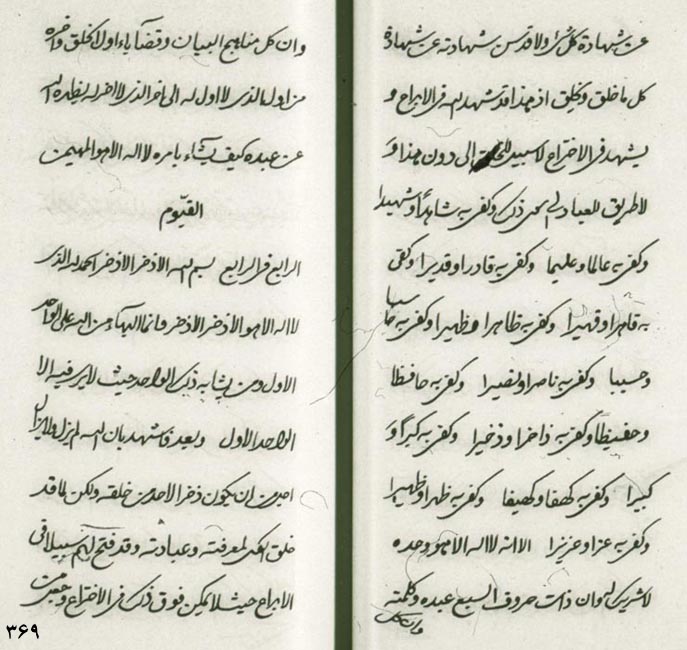 عن شهادة كل شئ ولا قدس شهادته عن شهادة
كل ما خلق ويخلق اذ بهذا قد شهد الله فى الابداع و
يشهد فى الاختراع لا سبيل الى دون هذا و
لا طريق للعباد الى ذلك وكفى به شاهدا وشهيدا
وكفى به عالما وعليما وكفى به قادرا وقديرا وكفى
به قاهرا وقهيرا وكفى به ظاهرا وظهيرا وكفى به حاسبا
وحسيبا وكفى به ناصرا ونصيرا وكفى به حافظا
وحفيظا وكفى به ذاخرا وذخيرا وكفى به كبرا و
كبيرا وكفى به كهفا وكهيفا وكفى به ظهرا وظهيرا
وكفى به عزا وعزيزا الا انه لا اله الا هو وحده
لا شريك له وان ذات حروف السبع عبده وكلمته
وان كل
وان كل مناهج البيان وقضآياء اول الخلق وآخره
من اول الذى لا اول له الى آخر الذى لا آخر له يظهره الله
عن عبده كيف يشآء بامره لا اله الا هو المهيمن
القيّوم
الرابع فى الرابع بسم الله الاذخر الاذخر الحمد لله الذى
لا اله الا هو الاذخر الاذخر وانما البهاء من الله على الواحد
الاول ومن يشابه ذلك الواحد حيث لا يرى فيه الا
الواحد الاول وبعد فاشهد بان الله لم يزل ولا يزال
اجل من ان يكون ذخر الاحد من خلقه ولكن لما قد
خلق الكل لمعرفته وعبادته وقد فتح لهم سبيلا فى
الابداع حيث لا يمكن فوق ذلك فى الاختراع وجعل
٣۶٩